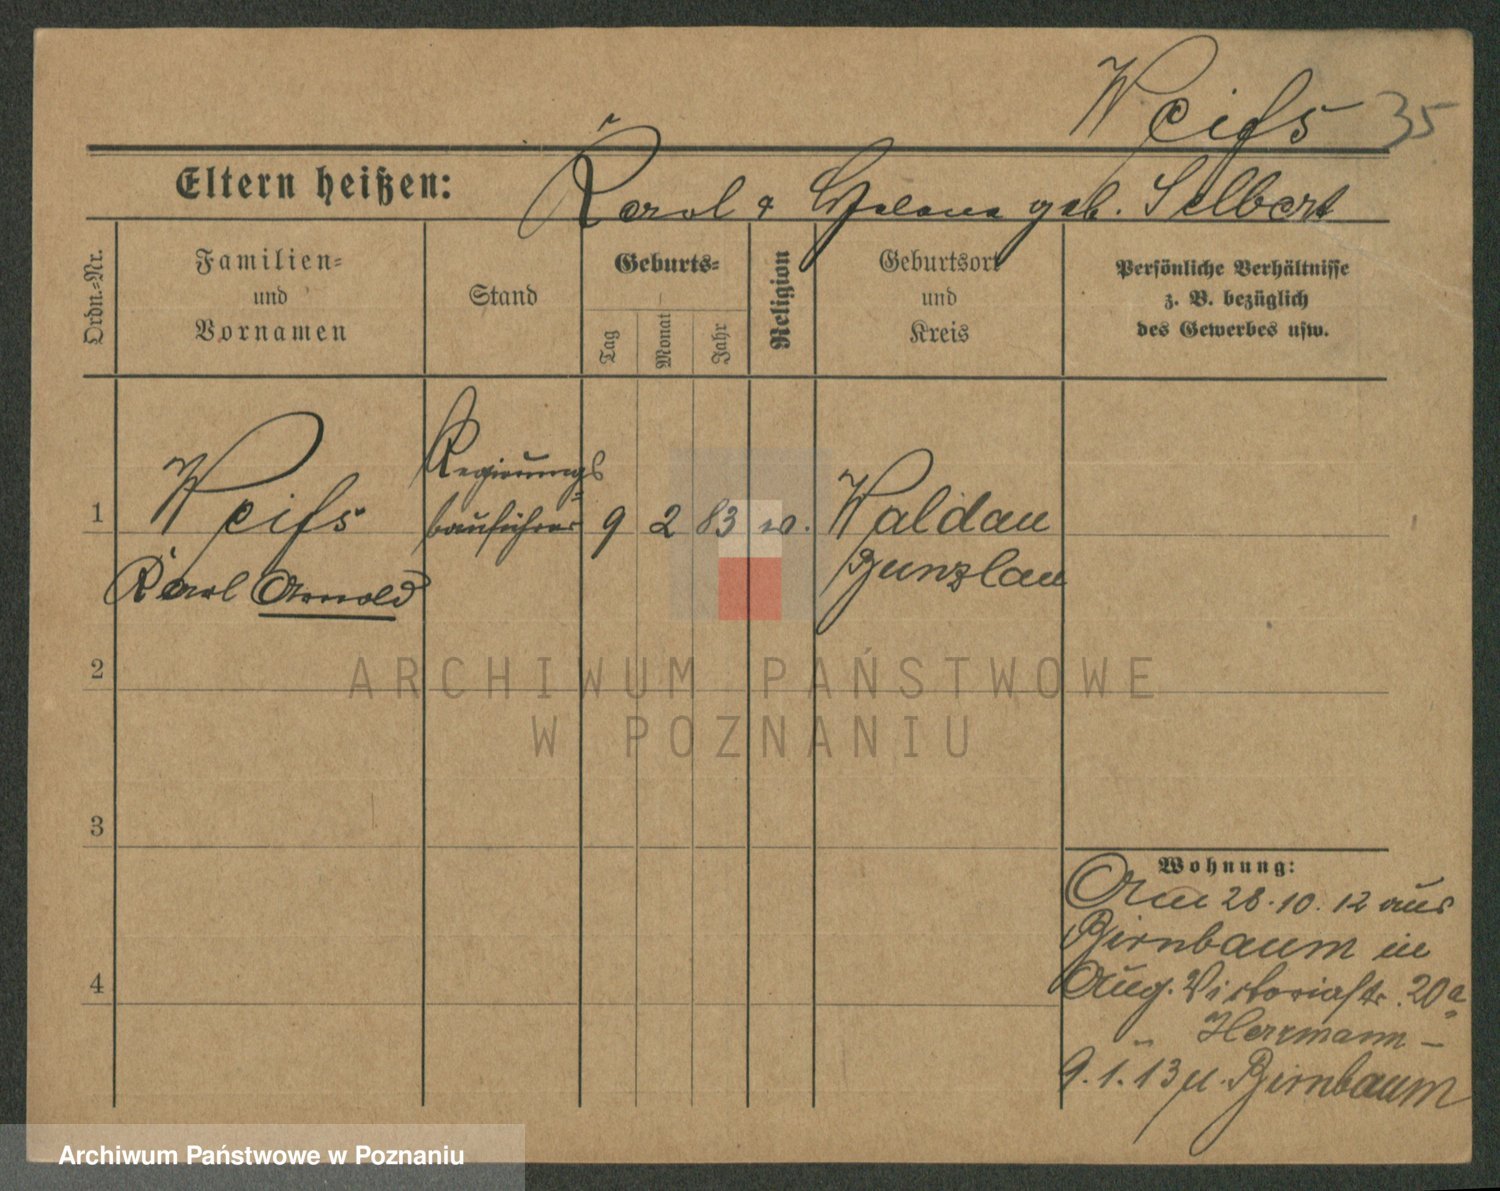 Weiſs 35
Eltern heißen: Karl & Helene geb. Selbert
Ordn.-Nr.
Familien-
und
Vornamen
Stand
Geburts-
Tag
Monat
Jahr
Religion
Geburtsort
und
Kreis
Persönliche Verhältnisse
z. B. bezüglich
des Gewerbes usw.
1 Weiſs
Karl Arnold
Regierungs
bauführer
9 2 83
Waldau
Bunzlau
2
ARCHIWUM PAŃSTWOWE
W POZNANIU
3
4
Wohnung:
Am 28.10.12 aus
Birnbaum in
Aug. Victoriastr. 20a
Herrmann -
9.1.13 n. Birnbaum
Archiwum Państwowe w Poznaniu